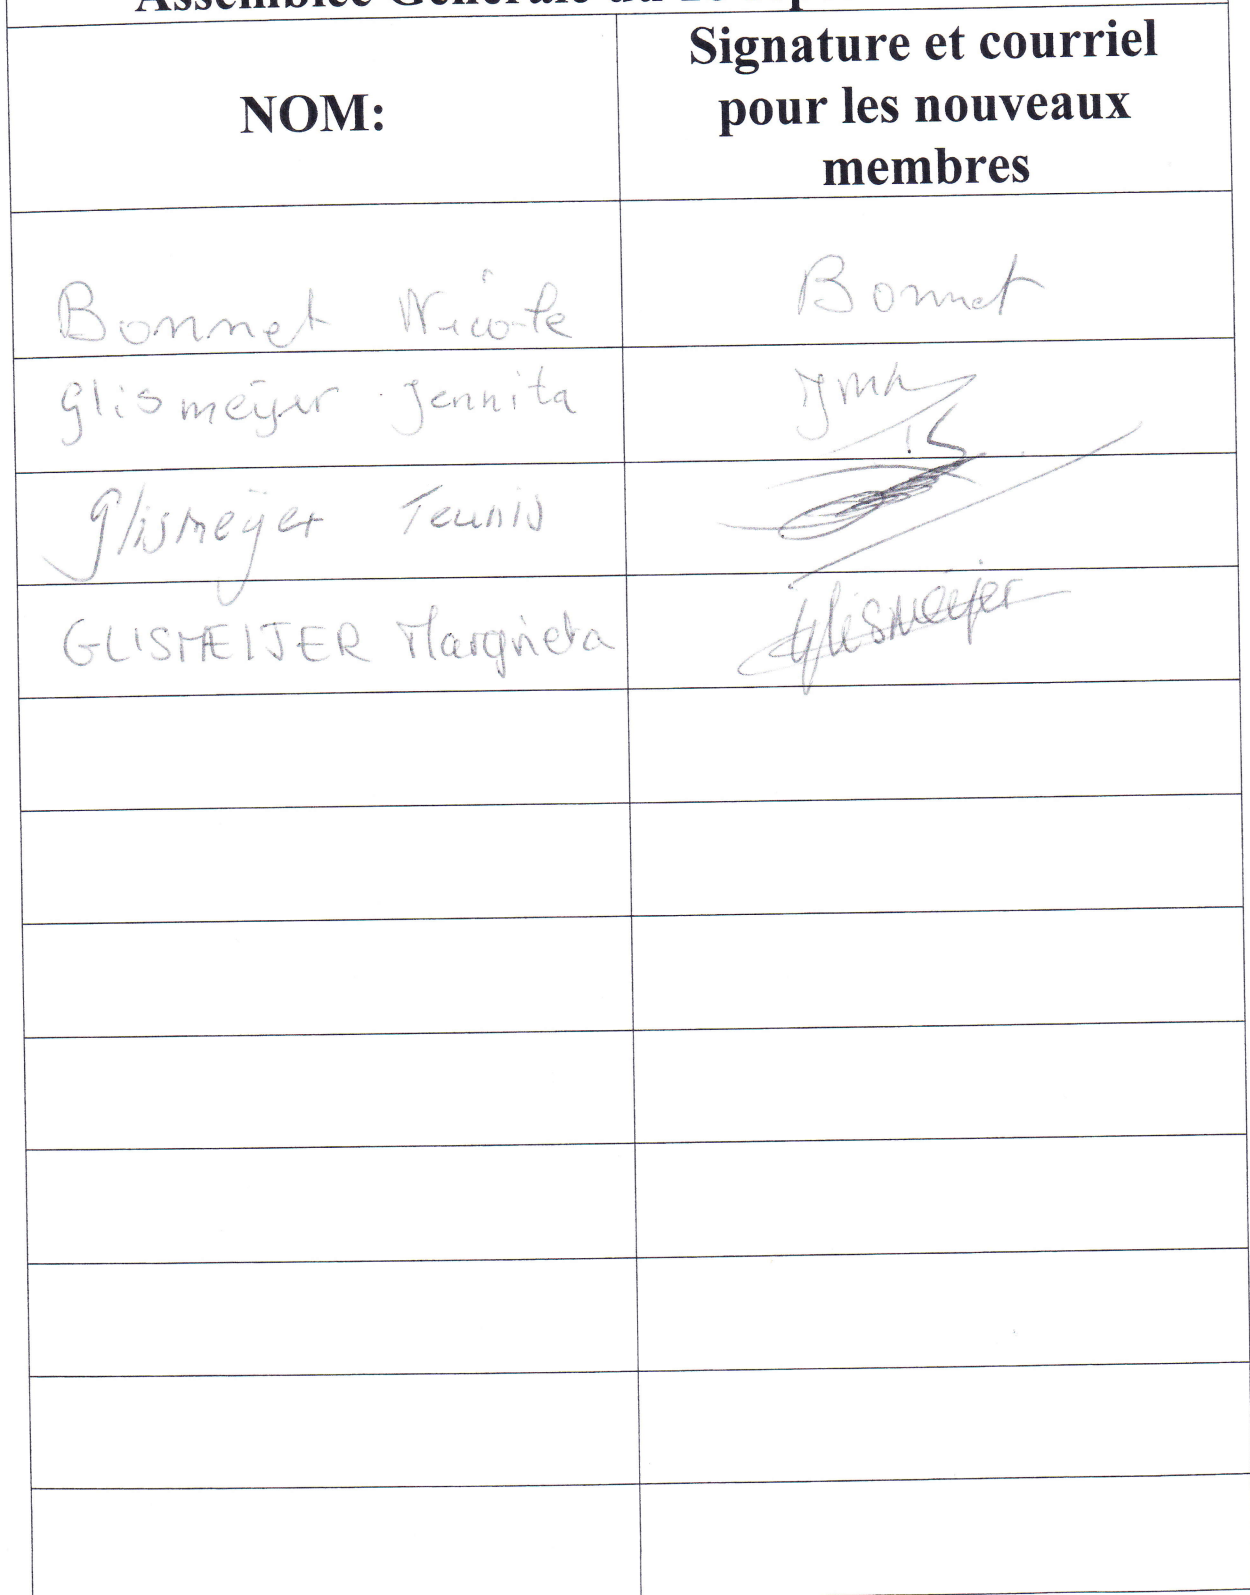 Assemblée Générale du
NOM:
Signature et courriel
pour les nouveaux
membres
Bonnet Nicole
Bonnet
Glismeÿer Jennita
Glismeÿer Teunis
GLISMEIJER Margrieta
Glismeijer